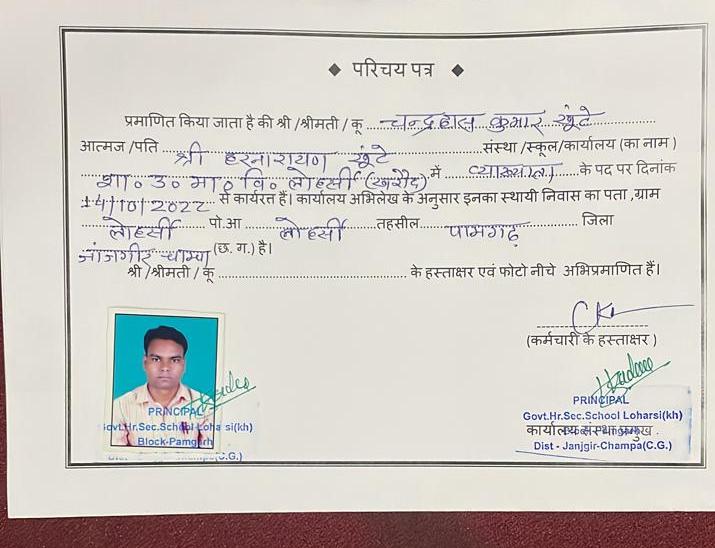 ◆ परिचय पत्र ◆
प्रमाणित किया जाता है की श्री /श्रीमती / कू चन्द्रहास कुमार खूंटे
आत्मज /पति श्री हरनारायण खूंटे संस्था /स्कूल/कार्यालय (का नाम )
शा० उ० मा० वि० लोहर्सी (खरौद) में व्याख्याता के पद पर दिनांक
14/10/2022 से कार्यरत हैं। कार्यालय अभिलेख के अनुसार इनका स्थायी निवास का पता ,ग्राम
लोहर्सी पो.आ लोहर्सी तहसील पामगढ़ जिला
जांजगीर चाम्पा (छ. ग.) है।
श्री /श्रीमती / कू के हस्ताक्षर एवं फोटो नीचे अभिप्रमाणित हैं।
(कर्मचारी के हस्ताक्षर )
PRINCIPAL
Govt.Hr.Sec.School Loharsi(kh)
Block-Pamgarh
Dist - Janjgir-Champa(C.G.)
PRINCIPAL
Govt.Hr.Sec.School Loharsi(kh)
कार्यालय संस्था प्रमुख .
Dist - Janjgir-Champa(C.G.)